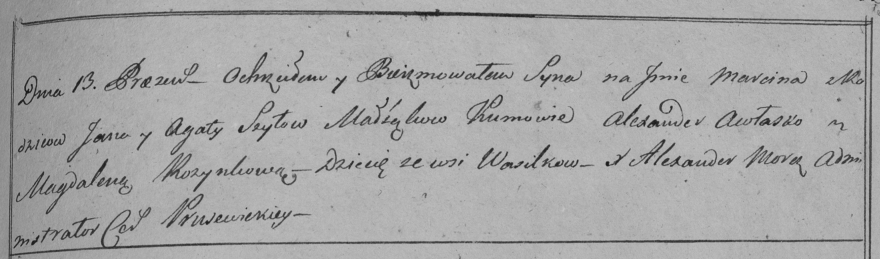 Dnia 13. Przezemnie Ochrzciłem y Bierzmowałem Syna na Jmie Marcina z Ro
dzicow Jana y Agaty Szyłow Małżąkow Kumowie Alexander Awłasko y
Magdalena Rozynkowa – Dziecię ze wsi Wasilkow – X Alexander Morcz Admi
nistrator Prusewickiey –